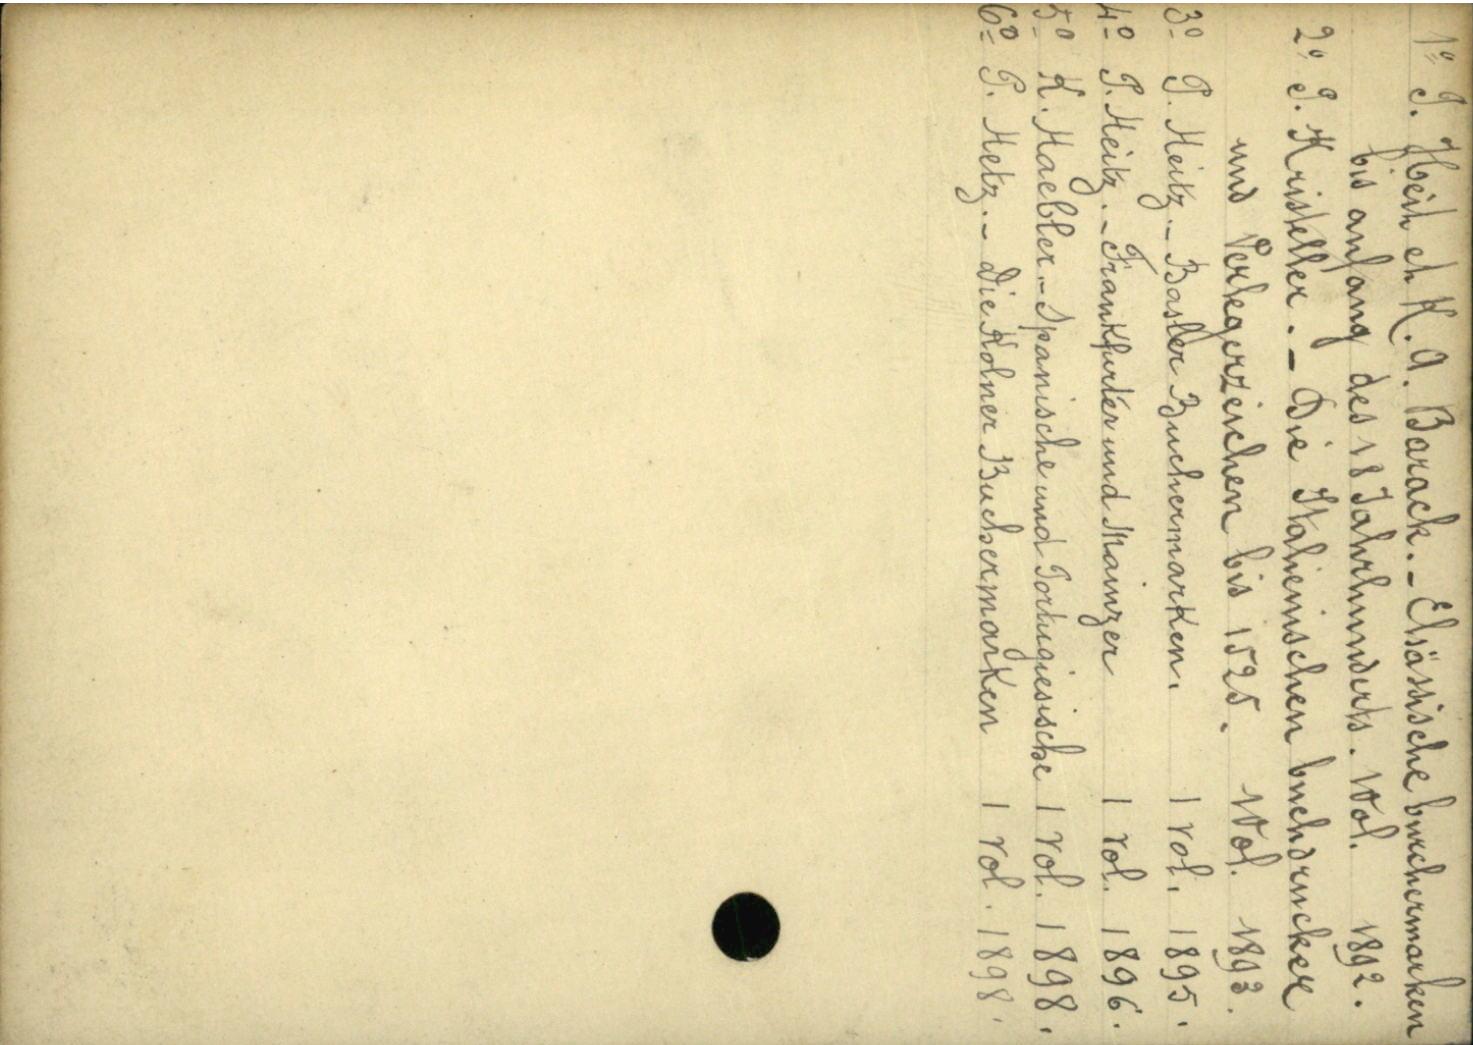 1º P. Heit et K. A. Barack. - Elsässische burchermarken
bis anfang des 18 Jahrhunderts. 1 Vol. 1892.
2º P. Kristeller. - Die Italienischen buchdrucker
und Verlegerzeichen bis 1525. 1 Vol. 1893.
3º P. Heitz. - Basler Buchermarken. 1 vol. 1895.
4º P. Heitz. - Frankfurter und Mainzer 1 vol. 1896.
5º K. Haebler. - Spanische und Portugiesische 1 vol. 1898.
6º P. Hetz. - Die Kolner Buchermarken 1 vol. 1898.